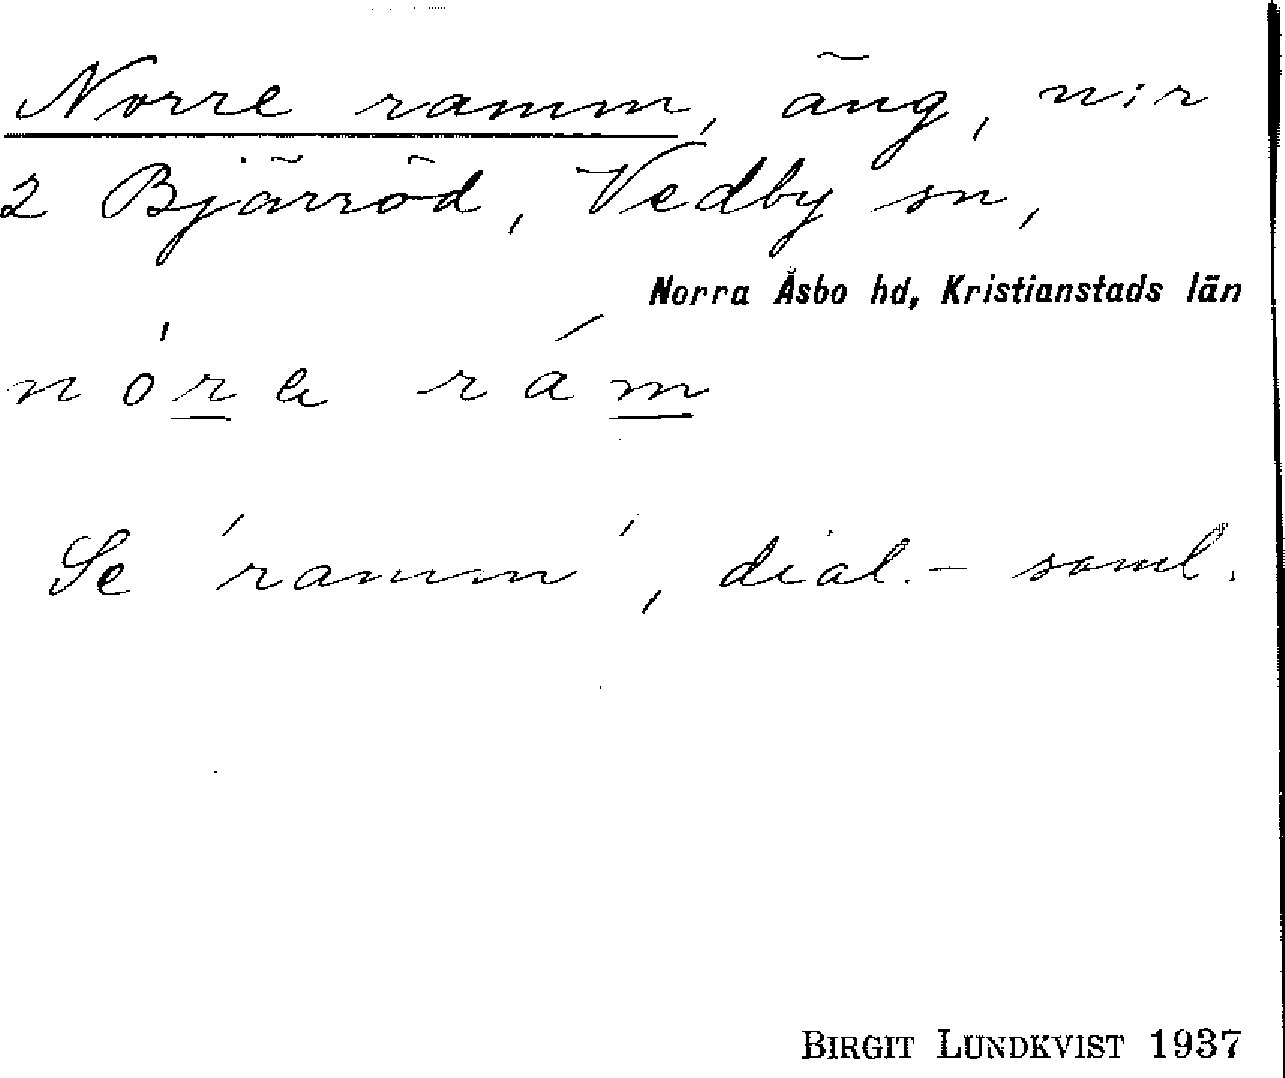 Norre ramm, äng, n:r
2 Bjärröd, Vedby sn,
Norra Åsbo hd, Kristianstads län
nóra rám
Se 'ramm', dial.- saml.
BIRGIT LUNDKVIST 1937